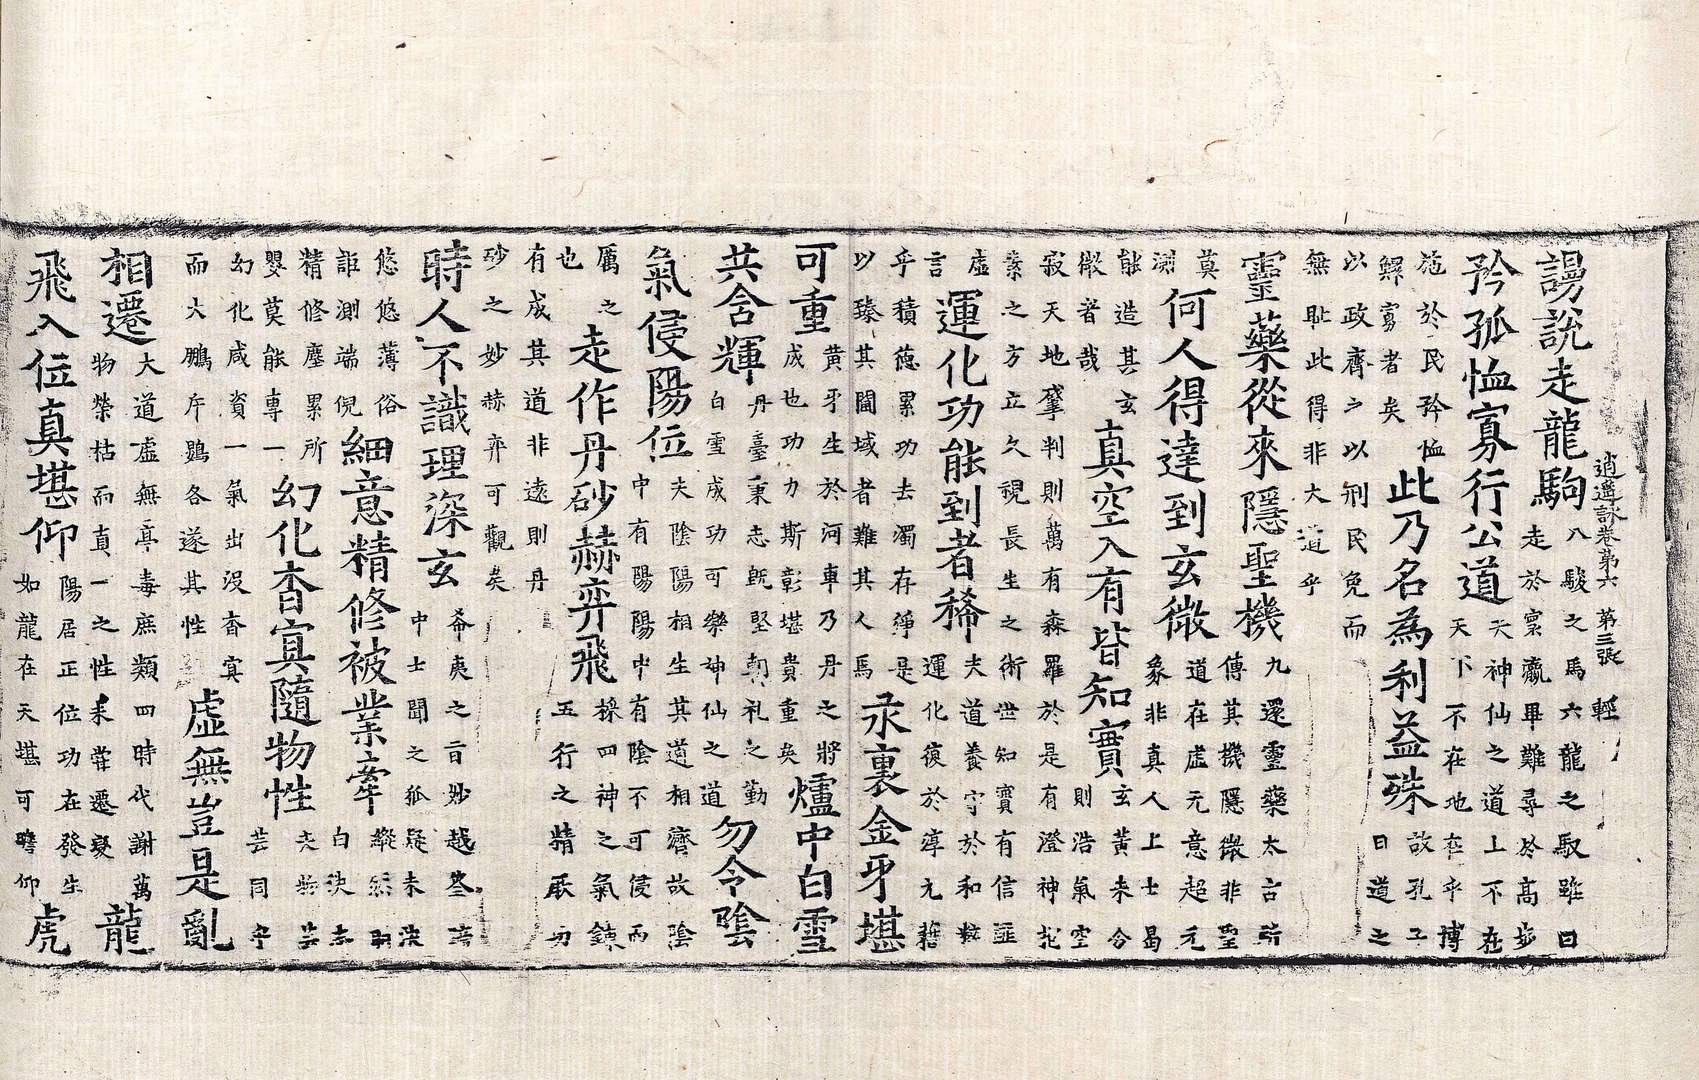 逍遙詠卷第六 第三張 輕
謾說走龍駒 八駿之馬六龍之馭雖曰
走於寰瀛畢難尋於高步
矜孤恤寡行公道 夫神仙之道上不在
天下不在地在乎博
施於民矜恤
鰥寡者矣 此乃名為利益殊 故孔子
曰道之
以政齊之以刑民免而
無恥此得非大道乎
靈藥從來隱聖機 九還靈藥太古所
傳其機隱微非聖
莫
測 何人得達到玄微 道在虛无意超元
象非真人上士曷
能造其玄
微者哉 真空入有皆知實 玄黃未分
則浩氣空
寂天地肇判則萬有森羅於是有澄神抱
素之方立久視長生之術世知寶有信匪
虛
言 運化功能到者稀 夫道養守於和粹
運化復於淳元藉
乎積德累功去濁存淨是
以臻其閫域者難其人焉 汞裏金牙堪
可重 黃牙生於河車乃丹之將
成也功力斯彰堪貴重矣 爐中白雪
共含輝 丹臺秉志既堅朝礼之勤
白雪成功可樂神仙之道 勿令陰
氣侵陽位 夫陰陽相生其道相濟故陰
中有陽陽中有陰不可侵而
厲之
也 走作丹砂赫弈飛 採四神之氣鍊
五行之精厥功
有成其道非遠則丹
砂之妙赫弈可觀矣
時人不識理深玄 希夷之旨妙越筌蹄
中士聞之狐疑未決
悠悠薄俗
詎測端倪 細意精修被業牽 縱然明
白決志
精修塵累所
嬰莫能專一 幻化杳冥隨物性 夫物芸
芸同乎
幻化咸資一氣出沒杳冥
而大鵬斥鷃各遂其性 虛無豈是亂
相遷 大道虛無亭毒庶類四時代謝萬
物榮枯而真一之性未甞遷變 龍
飛入位真堪仰 陽居正位功在發生
如龍在天堪可瞻仰 虎